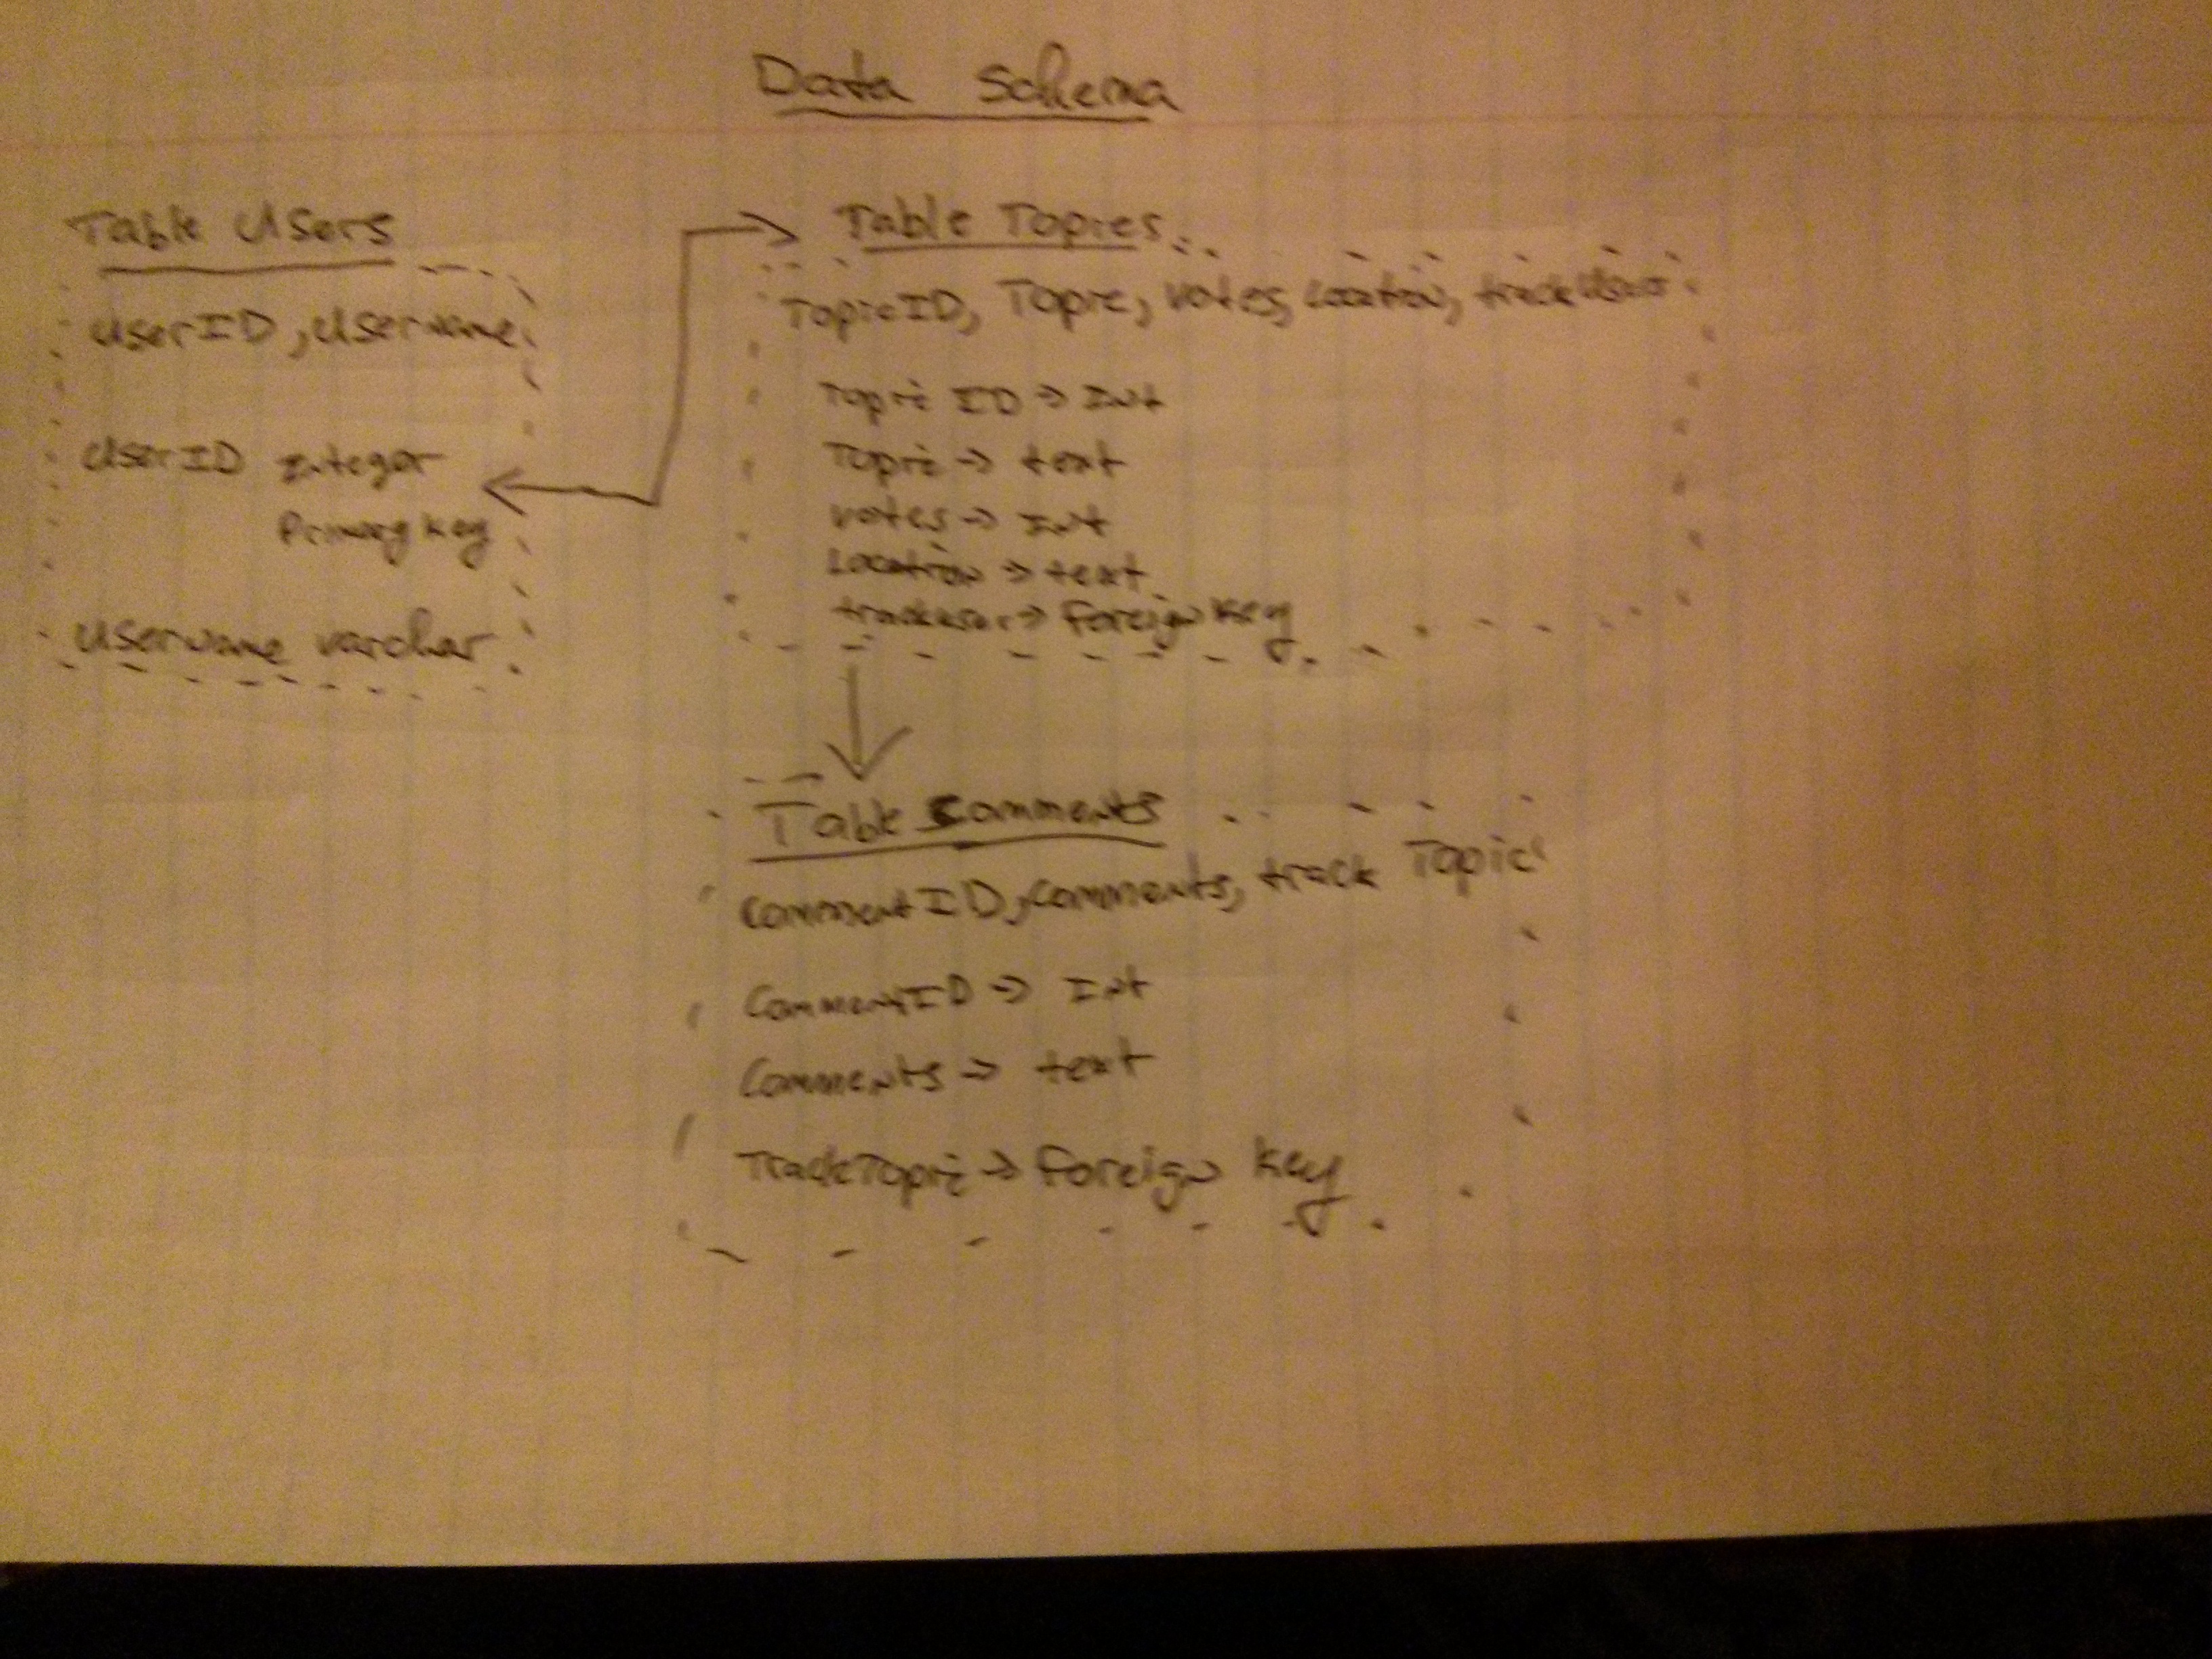 Data Schema
Table Users
UserID, Username
UserID Integer
Primary Key
Username varchar
Table Topics
TopicID, Topic, votes, Location, trackUser
Topic ID → Int
Topic → text
votes → Int
Location → text
trackuser → Foreign Key
Table Comments
CommentID, Comments, track Topic
CommentID → Int
Comments → text
TrackTopic → Foreign Key